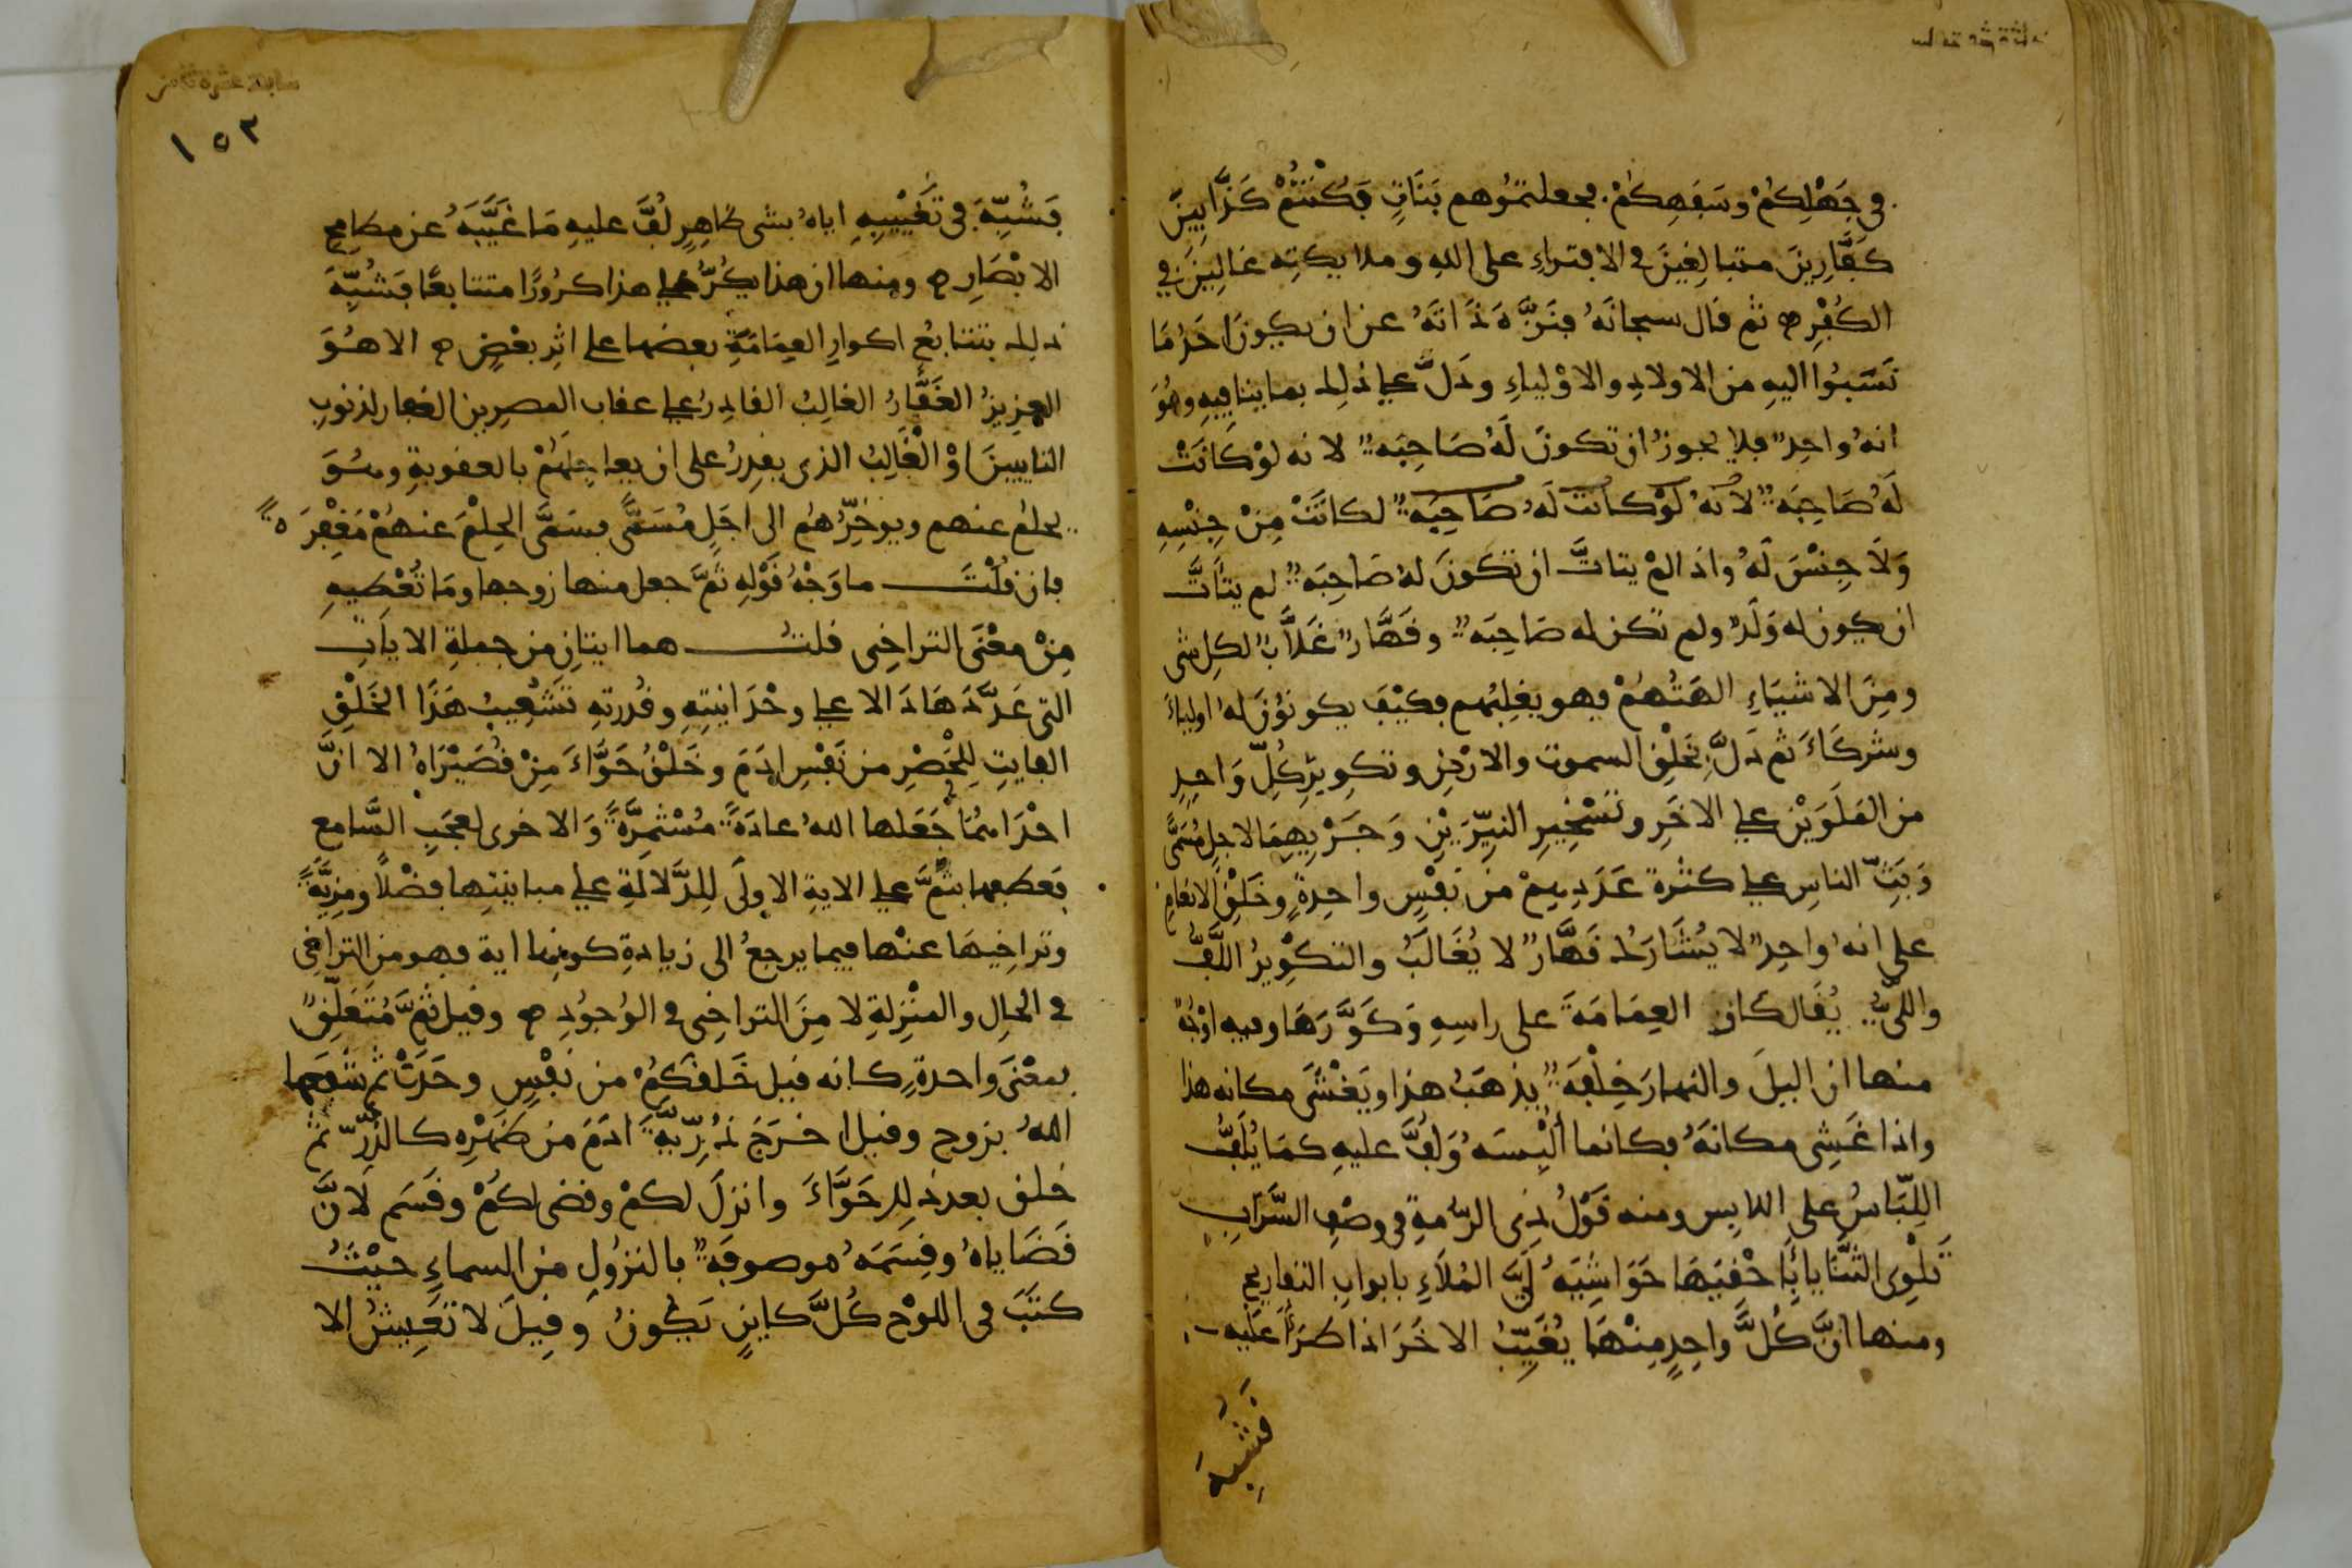 في جَهْلِكُمْ وسَفَهِكمْ. فجعلتمُوهم بَنَاتٍ فكُنْتُمْ كَذَّابِينَ
كَفَّارِينَ متبالِغينَ في الافتراءِ على اللهِ وملايكتِه غالِينَ في
الكُفْرِ ثم قال سبحانَهُ فنَزَّهَ ذَاتَهُ عن ان يكونَ احَدُ مَا
نَسَبُوا اليهِ من الاولادِ والاوْلياءِ ودَلَّ على ذلِك بما ينافيهِ وهُوَ
انهُ واحِدٌ فلا يجوزُ ان تكونَ لَهُ صَاحِبَةٌ لانه لوْ كَانَتْ
لَهُ صَاحِبَةٌ لانهُ لوْ كانت لَهُ صَاحِبَةٌ لكانَتْ مِنْ جِنْسِهِ
وَلَا جِنْسَ لَهُ واذا لمْ يتاتَّ ان تكونَ لهُ صَاحِبَةٌ لم يتأتَّ
ان يكون له وَلَدٌ ولم تكن له صَاحِبَةٌ وقَهَّارٌ غَلَّابٌ لكلِ شي
ومِنَ الاشيَاءِ الهَتُهُمْ فهو يغلِبُهم فكيْفَ يكونُونَ لهُ اولياءَ
وشركَاءَ ثم دَلَّ بخَلْقِ السموت والارْضِ وتكوِيرِ كلِّ وَاحِدٍ
من المَلَوَيْنِ على الاخَرِ وتَسْخِيرِ النيِّرَيْنِ وَجَرْيِهِمَا لاجلٍ مُسَمَّى
وَبَثِّ الناسِ على كثرة عَدَدِهِمْ من نَفْسٍ واحِدةٍ وخَلْقِ الانعامِ
على انهُ واحِدٌ لا يُشَارَك قَهَّارٌ لا يُغَالَبُ والتكْوِيرُ اللَّفُّ
واللَّيُّ يُقَال كار العِمَامَةَ على راسِهِ وَكَوَّرَهَا وفيه اوْجُهٌ
منها ان اليلَ والنهارَ خِلْفَةٌ يذهَبُ هذا ويَغْشَى مكانه هذا
واذا غَشِى مكانَهُ فكانما ألْبِسَهُ وَلفَّ عليهِ كمَا يُلَفُّ
اللِّبَاسُ على اللابِس ومنه قَوْلُ ذِى الرُّمةِ في وصْفِ السَّرَابِ
تَلْوِى الثنَايا بأَحْقيهَا حَوَاشِيَهُ لَيَّ المُلَاءِ بابوابِ التفاريجِ
ومنها انَّ كُلَّ واحِدٍ مِنْهمَا يُغَيِّبُ الاخَرَ اذا طرَأ عَليه
فَشُبِّهَ
سابعة عشرة ثامن
١٥٢
فَشُبِّهَ في تَغْيِيبِهِ اياهُ بشي ظاهِرٍ لُفَّ عليهِ مَا غَيَّبَهُ عن مطامِحِ
الابْصَارِ ومنها ان هذا يكُرُّ على هذا كرُورًا متتابعًا فَشُبِّهَ
ذلِك بتتابُعِ اكوارِ العِمَامَةِ بعضها على اثرِ بعْضٍ الا هُوَ
العزيزُ الغَفَّارُ الغالِبُ القادِرُ على عقاب المصرين الغفار لذنوبِ
التايبينَ اوْ الْغَالِبُ الذى يقدِرُ على ان يعاجِلَهُمْ بالعقوبةِ وهُوَ
يحلمُ عنهم ويوخِّرُهُم الى اجَلٍ مُسَمًّى فسَمَّى الحِلْمَ عنهُمْ مَغْفِرَةً
فان قُلْتَ ما وَجْهُ قَوْلِهِ ثمَّ جعل منها زوجها ومَا تُعْطِيهِ
مِنْ معْنَى التراخِى قلتُ هما ايتانِ من جملةِ الاياتِ
التى عَدَّدَهَا دَالا على وحْدَانيتِهِ وقُدرتهِ تَشَعِيبُ هَذَا الخَلْقِ
الفايتِ لِلْحَصْرِ من نَفْسِ ادَمَ وخَلْقُ حَوَّاءَ مِنْ قُصَيْرَاهُ الا انَّ
احْدَاهُمَا جَعَلها اللهُ عادَةً مُسْتمِرَّةً وَالاخرى لعجَبِ السَّامع
فعطفها بثُمَّ على الايةِ الاولَى لِلدَّلالَةِ على مباينتِها فضْلًا ومزِيَّةً
وتراخِيهَا عنْها فيما يرجعُ الى زيادةِ كونِها اية فهو من التراخِى
في الحالِ والمنْزِلةِ لا مِنَ التراخِى في الوُجُودِ وقيل ثُمَّ مُتَعَلِّقٌ
بمعْنَى واحدةٍ كانه قيل خَلقكُمْ من نفْسٍ وحَدَتْ ثم شفعَها
اللهُ بزوج وقيل اخرَجَ ذُرِّيَّةَ ادَمَ من ظهْرِه كالذَّرِّ ثم
خلق بعد ذلِك حَوَّاءَ وانزلَ لكمْ وقضى لكُمْ وقَسَم لانَّ
قَضَاياهُ وقِسَمَهُ موصوفةٌ بالنزُولِ من السماءِ حيْثُ
كتَبَ في اللوْحِ كُلَّ كاينٍ يَكُونُ وقِيلَ لا تَعِيشُ الا